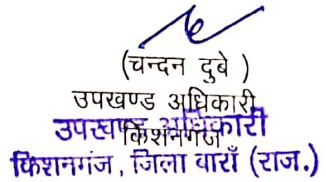 (चन्दन दुबे )
उपखण्ड अधिकारी
किशनगंज
उपखण्ड अधिकारी
किशनगंज, जिला बाराँ (राज.)